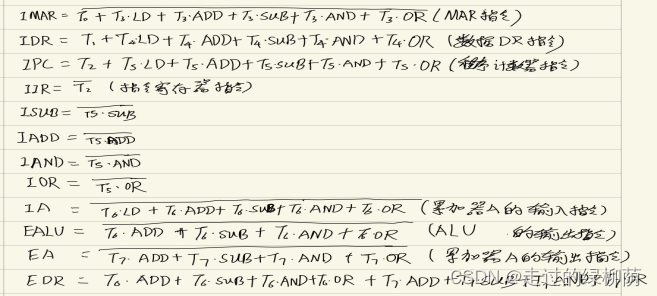 IMAR = T₀ + T₃·LD + T₃·ADD + T₃·SUB + T₃·AND + T₃·OR (MAR指令)
IDR = T₁ + T₄·LD + T₄·ADD + T₄·SUB + T₄·AND + T₄·OR (数据DR指令)
IPC = T₂ + T₅·LD + T₅·ADD + T₅·SUB + T₅·AND + T₅·OR (程序计数器指令)
IIR = T₂ (指令寄存器指令)
ISUB = T5·SUB
IADD = T5·ADD
IAND = T5·AND
IOR = T5·OR
IA = T₆·LD + T₆·ADD + T₆·SUB + T₆·AND + T₆·OR (累加器A的输入指令)
EALU = T₆·ADD + T₆·SUB + T₆·AND + T₆·OR (ALU 的输出指令)
EA = T₇·ADD + T₇·SUB + T₇·AND + T₇·OR (累加器A的输出指令)
EDR = T₆·ADD + T₆·SUB + T₆·AND + T₆·OR + T₇·ADD + T₇·SUB + T₇·AND + T₇·OR
CSDN @走过的绿柳荫